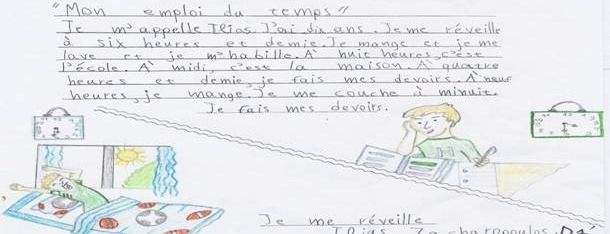 "Mon emploi du temps"
Je m'appelle Ilias. J'ai dix ans. Je me réveille
à six heures et demie. Je mange et je me
lave et je m'habille. À huit heures, c'est
l'école. À midi, c'est la maison. À quatre
heures et demie, je fais mes devoirs. À neuf
heures, je mange. Je me couche à minuit.
Je fais mes devoirs.
Je me réveille
Ilias